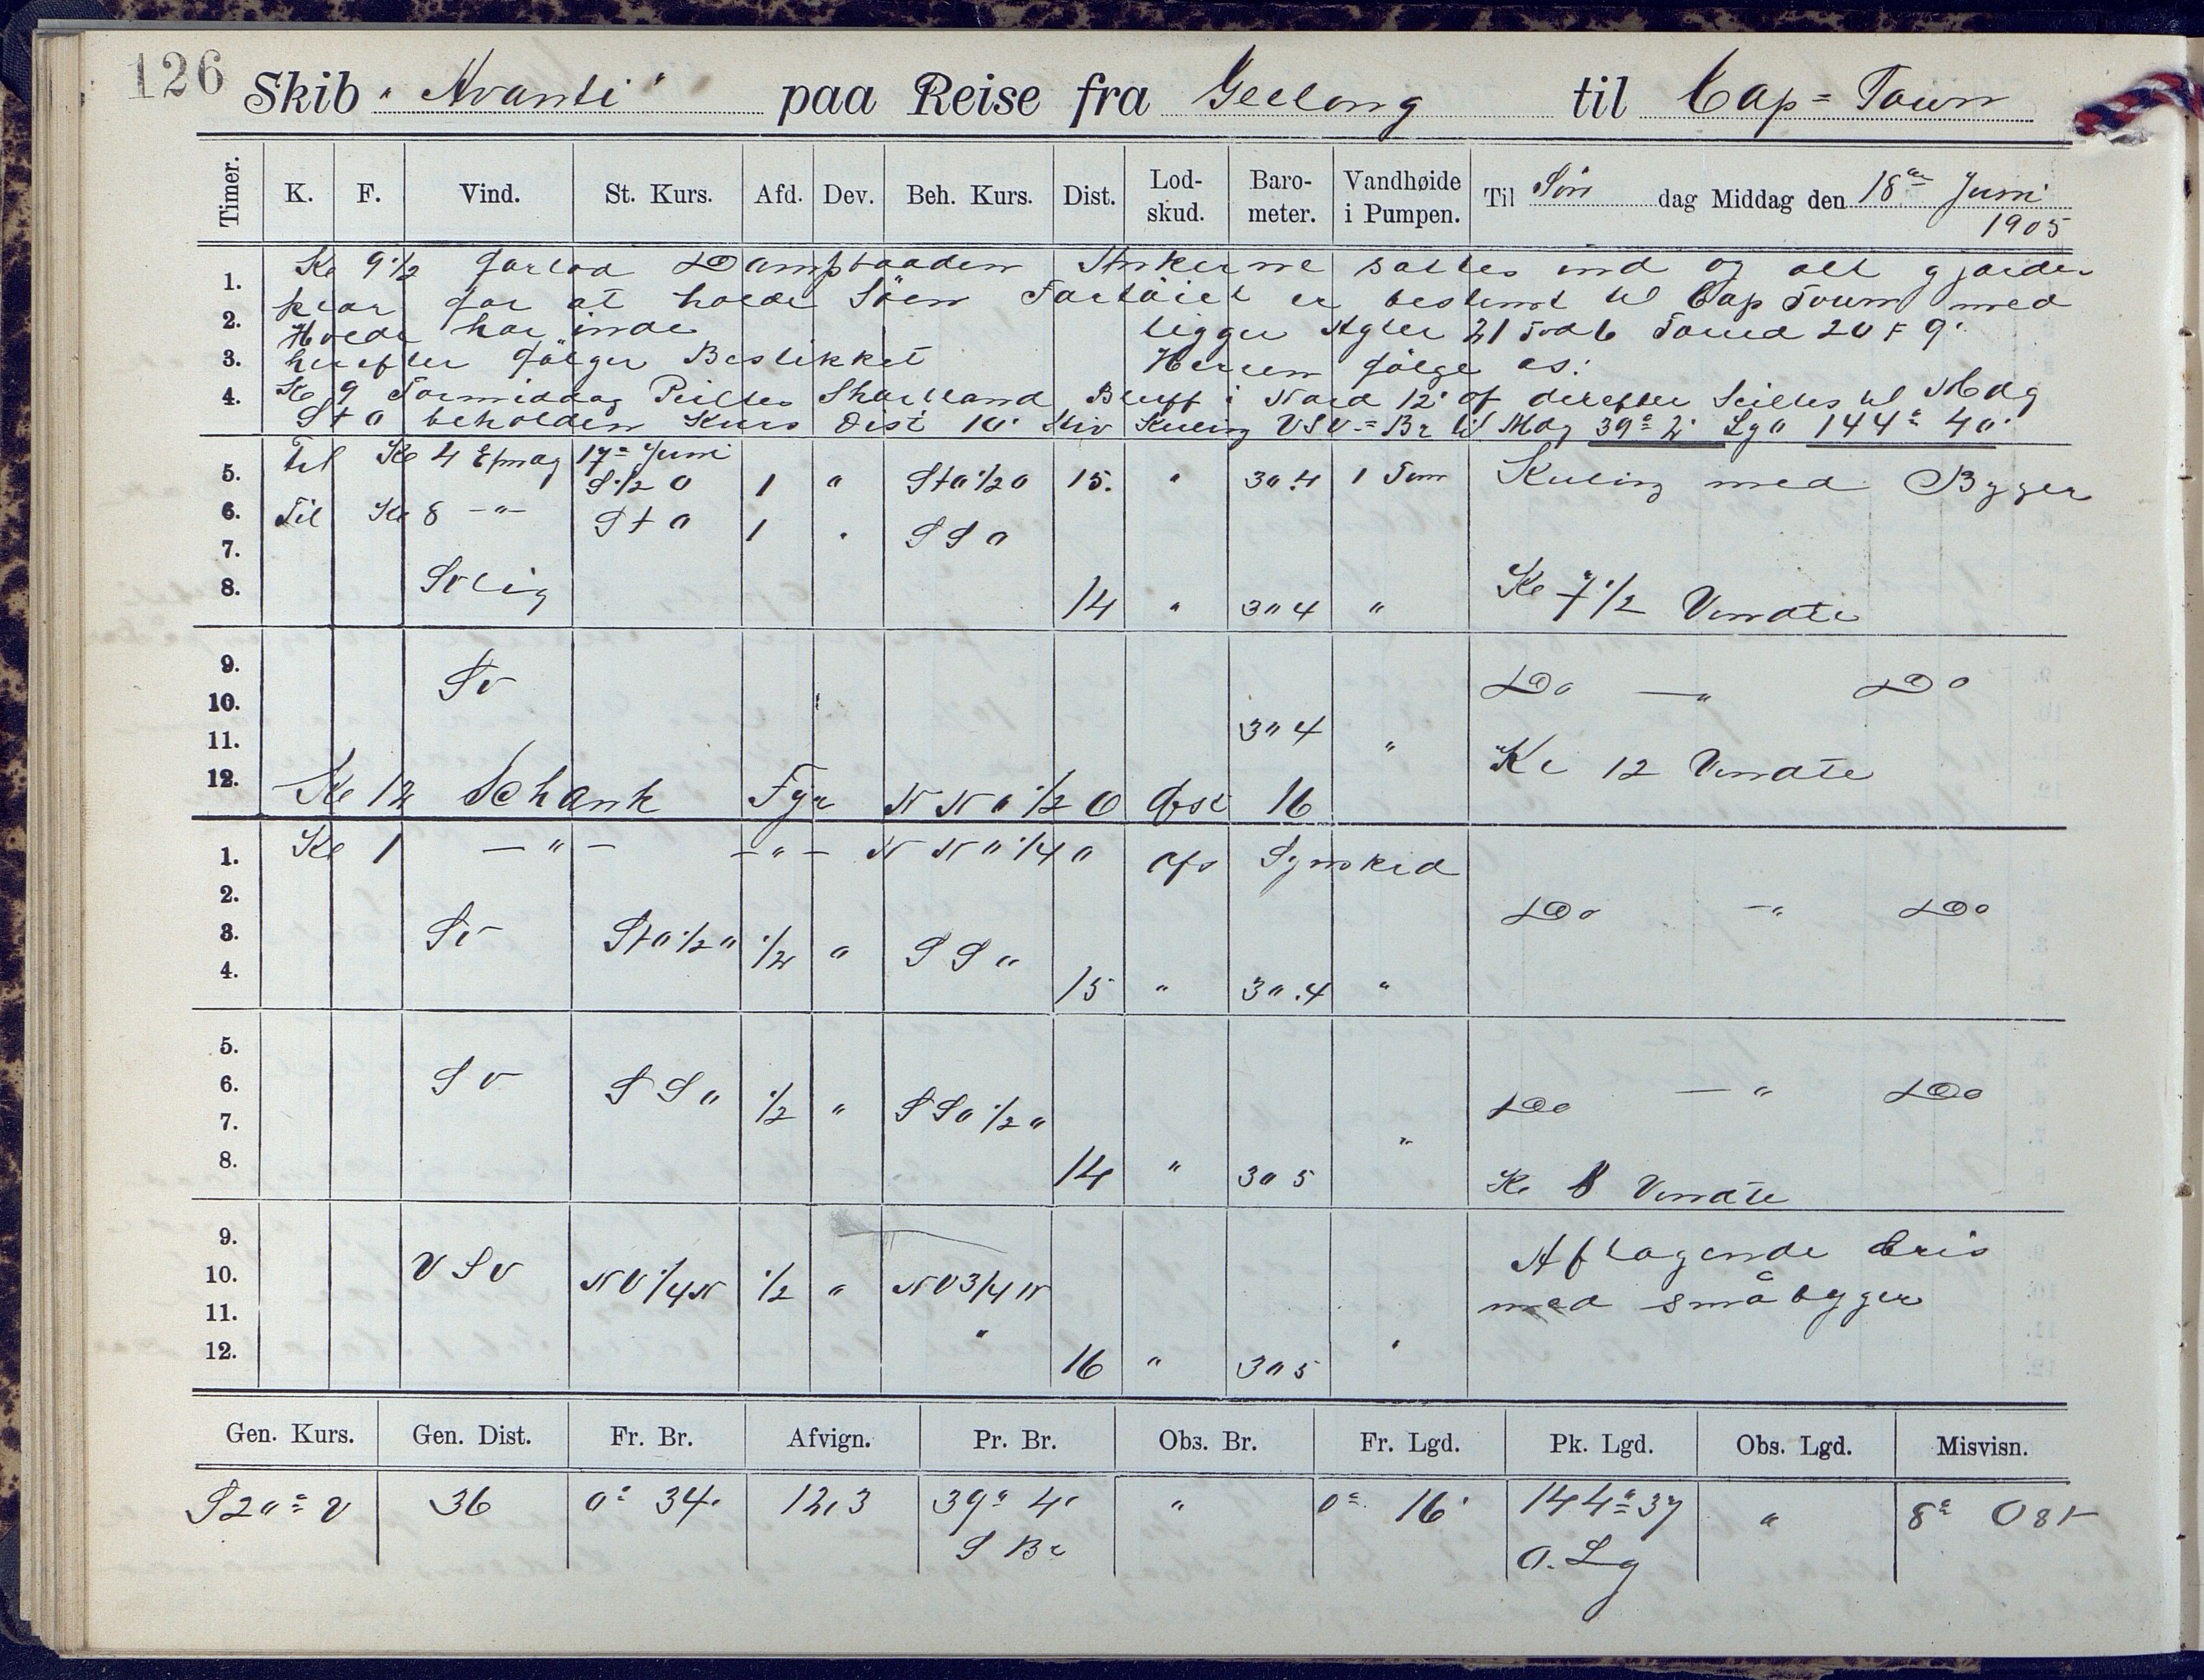 126
Skib "Avanti" paa Reise fra Geelong til Cap=Town
Timer. K. F. Vind. St. Kurs. Afd. Dev. Beh. Kurs. Dist. Lod-skud. Baro-meter. Vandhøide i Pumpen. Til Søn dag Middag den 18de Juni 1905
Kl 9 1/2 forlod Dampbaaden Ankerne sattes ind og alt gjordes
klar for at holde Söen Fartöiet er bestemt til Cap Town med
Hvede har inde ligger Agter 21 Fod 6 Forud 20 F 9"
herefter følger Bestikket Herren følge os!
Kl 9 Formiddag Peiltes Shortland Bluff i Nord 12' of derefter Seiltes til Mdg
StO beholden Kurs Dist 10' Stiv Kuling VSV= Br til Mdg 39° 2' Lg O 144° 40'
5. Til Kl 4 Efmdg 17= Juni S 1/2 O 1 " StO 1/2 O 15. " 30.4 1 Tom Kuling med Byger
6. Til Kl 8 -"- StO 1 " SSO
7.
8. SVlig 14 " 30 4 " Kl 7 1/2 Vendte
9. SV Do -"- Do
10.
11. 30 4 " Kl 12 Vendte
12. Kl 12 Schank Fyr NNO 1/2 O Afst 16
1. Kl 1 -"- -"- NNO 1/4 O af Synskred
2. Do -"- Do
3. SV StO 1/2 O 1/2 " SSO
4. 15 " 30.4 "
5.
6. SV SSO 1/2 " SSO 1/2 O Do -"- Do
7. "
8. 14 " 30 5 Kl 8 Vendte
9. Aftagende bris
10. VSV NV 1/4 N 1/2 " NV 3/4 N med småbyger
11. "
12. 16 " 30 5 "
Gen. Kurs. Gen. Dist. Fr. Br. Afvign. Pr. Br. Obs. Br. Fr. Lgd. Pk. Lgd. Obs. Lgd. Misvisn.
S 20° V 36 0° 34' 12,3 39° 4' " 0° 16' 144° 37 " 8° Ost
S Br O. Lg